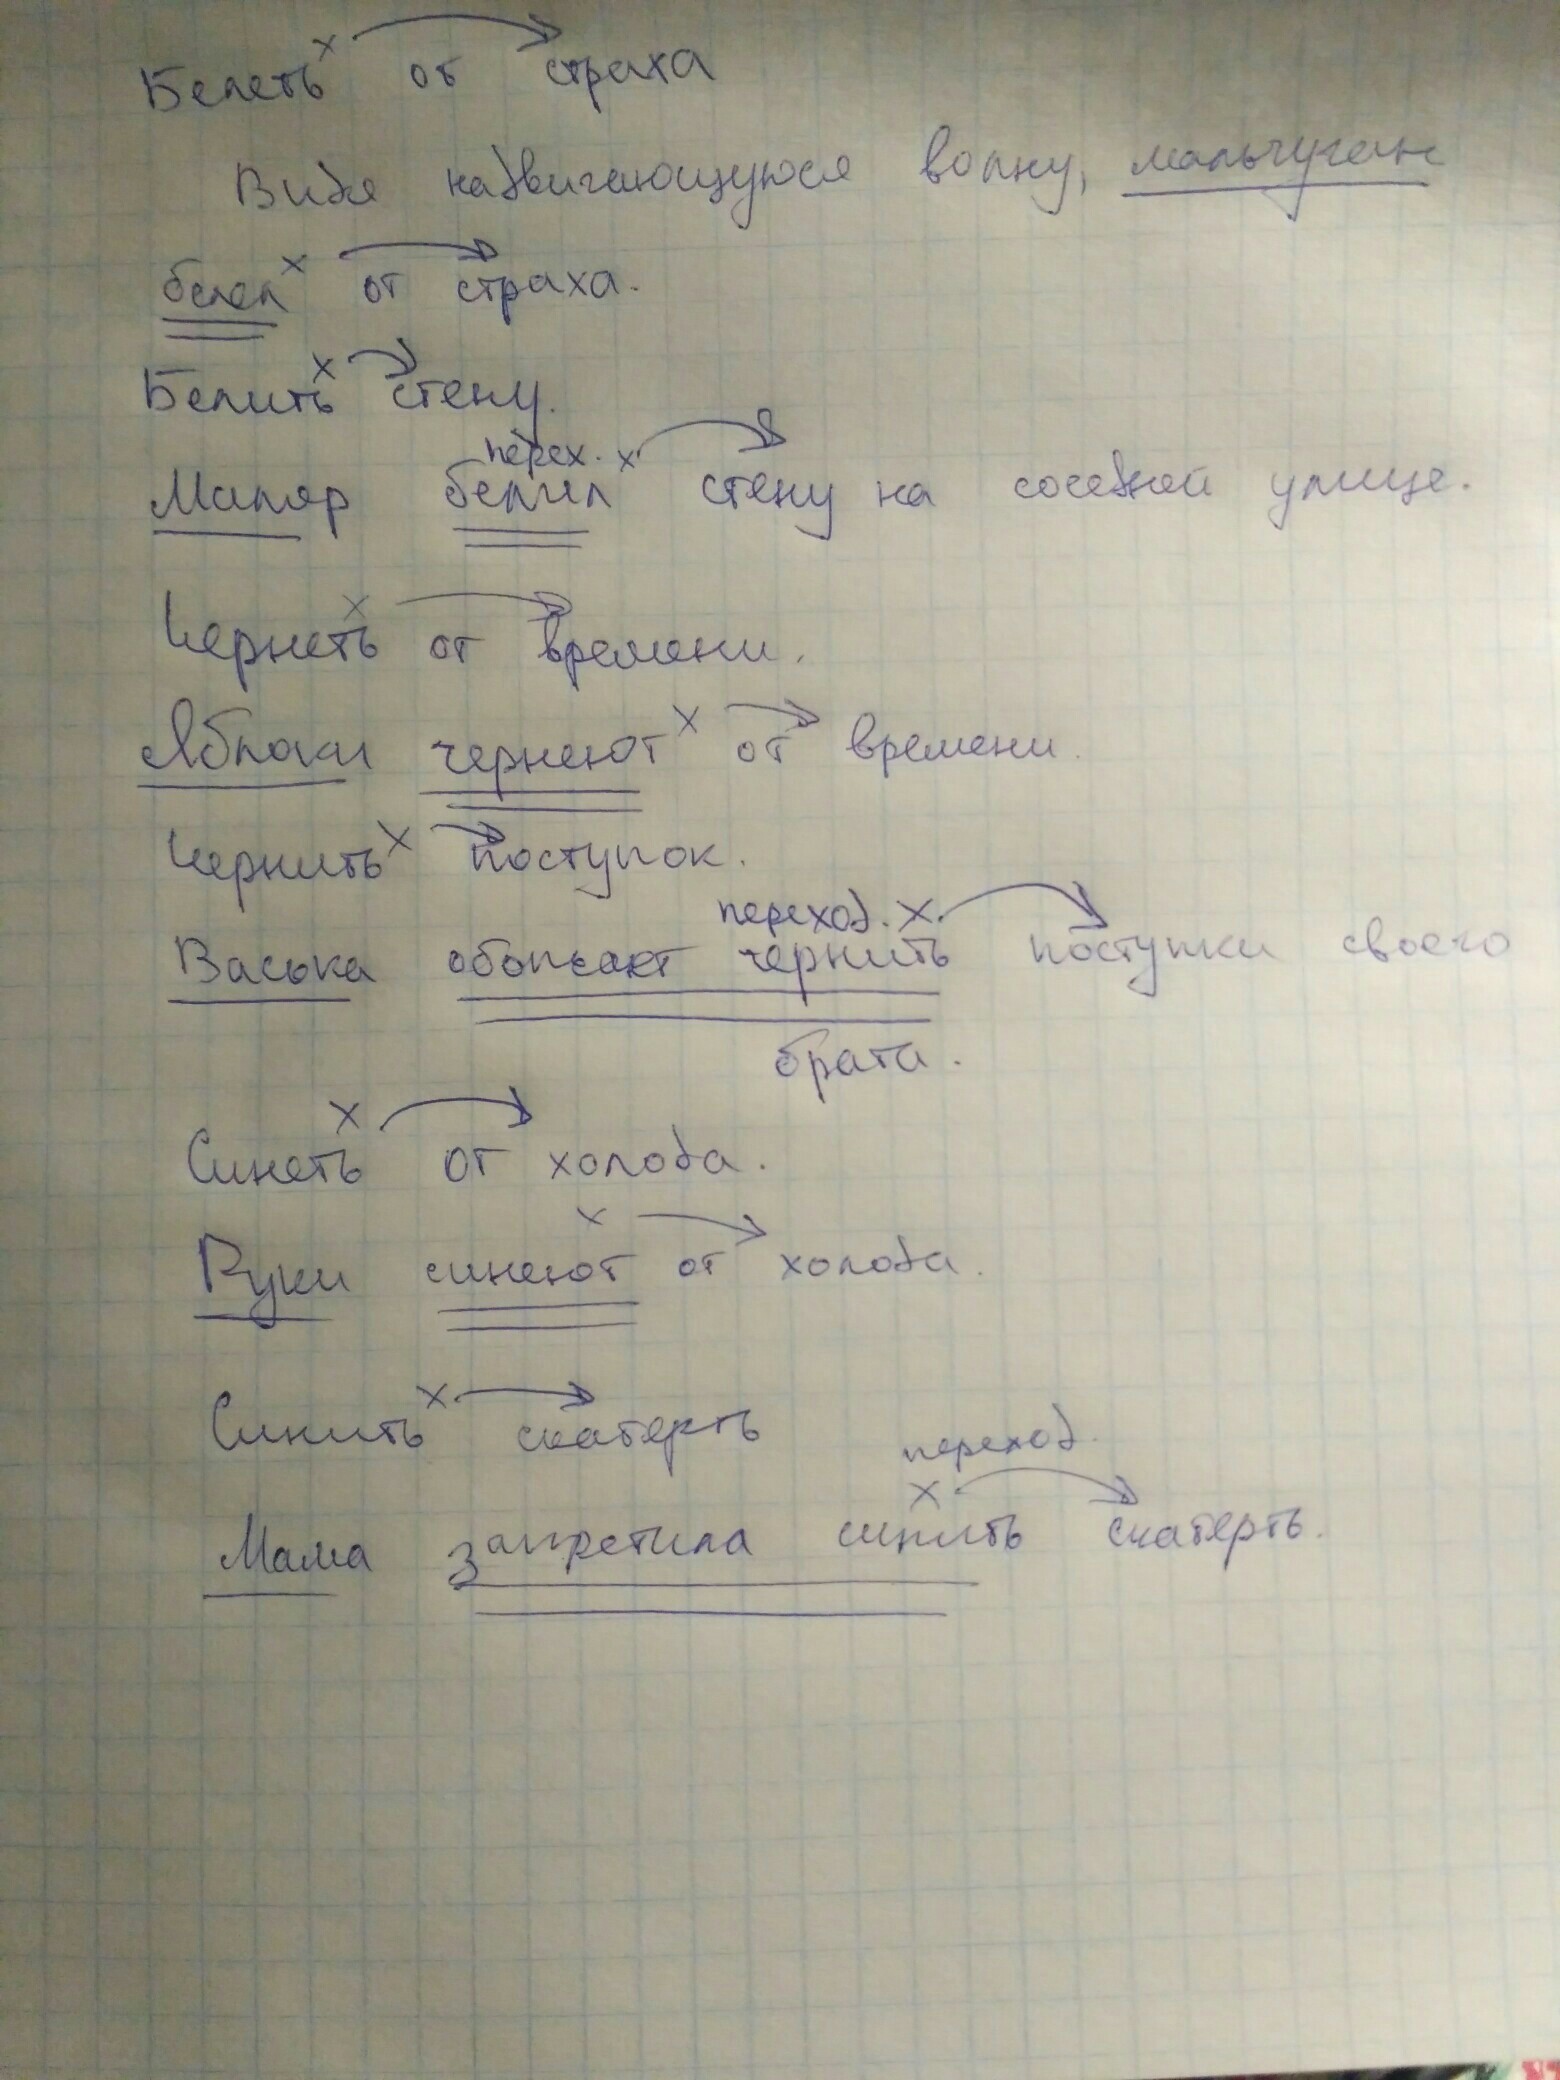 Белеть х от страха
Видя надвигающуюся волну, мальчуган
белел х от страха.
Белить х стену.
перех. х
Маляр белил стену на соседней улице.
Чернеть х от времени.
Яблоки чернеют х от времени.
Чернить х поступок.
переход. х
Васька обожает чернить поступки своего
брата.
х
Синеть от холода.
х
Руки синеют от холода.
Синить х скатерть
переход.
х
Мама запретила синить скатерть.